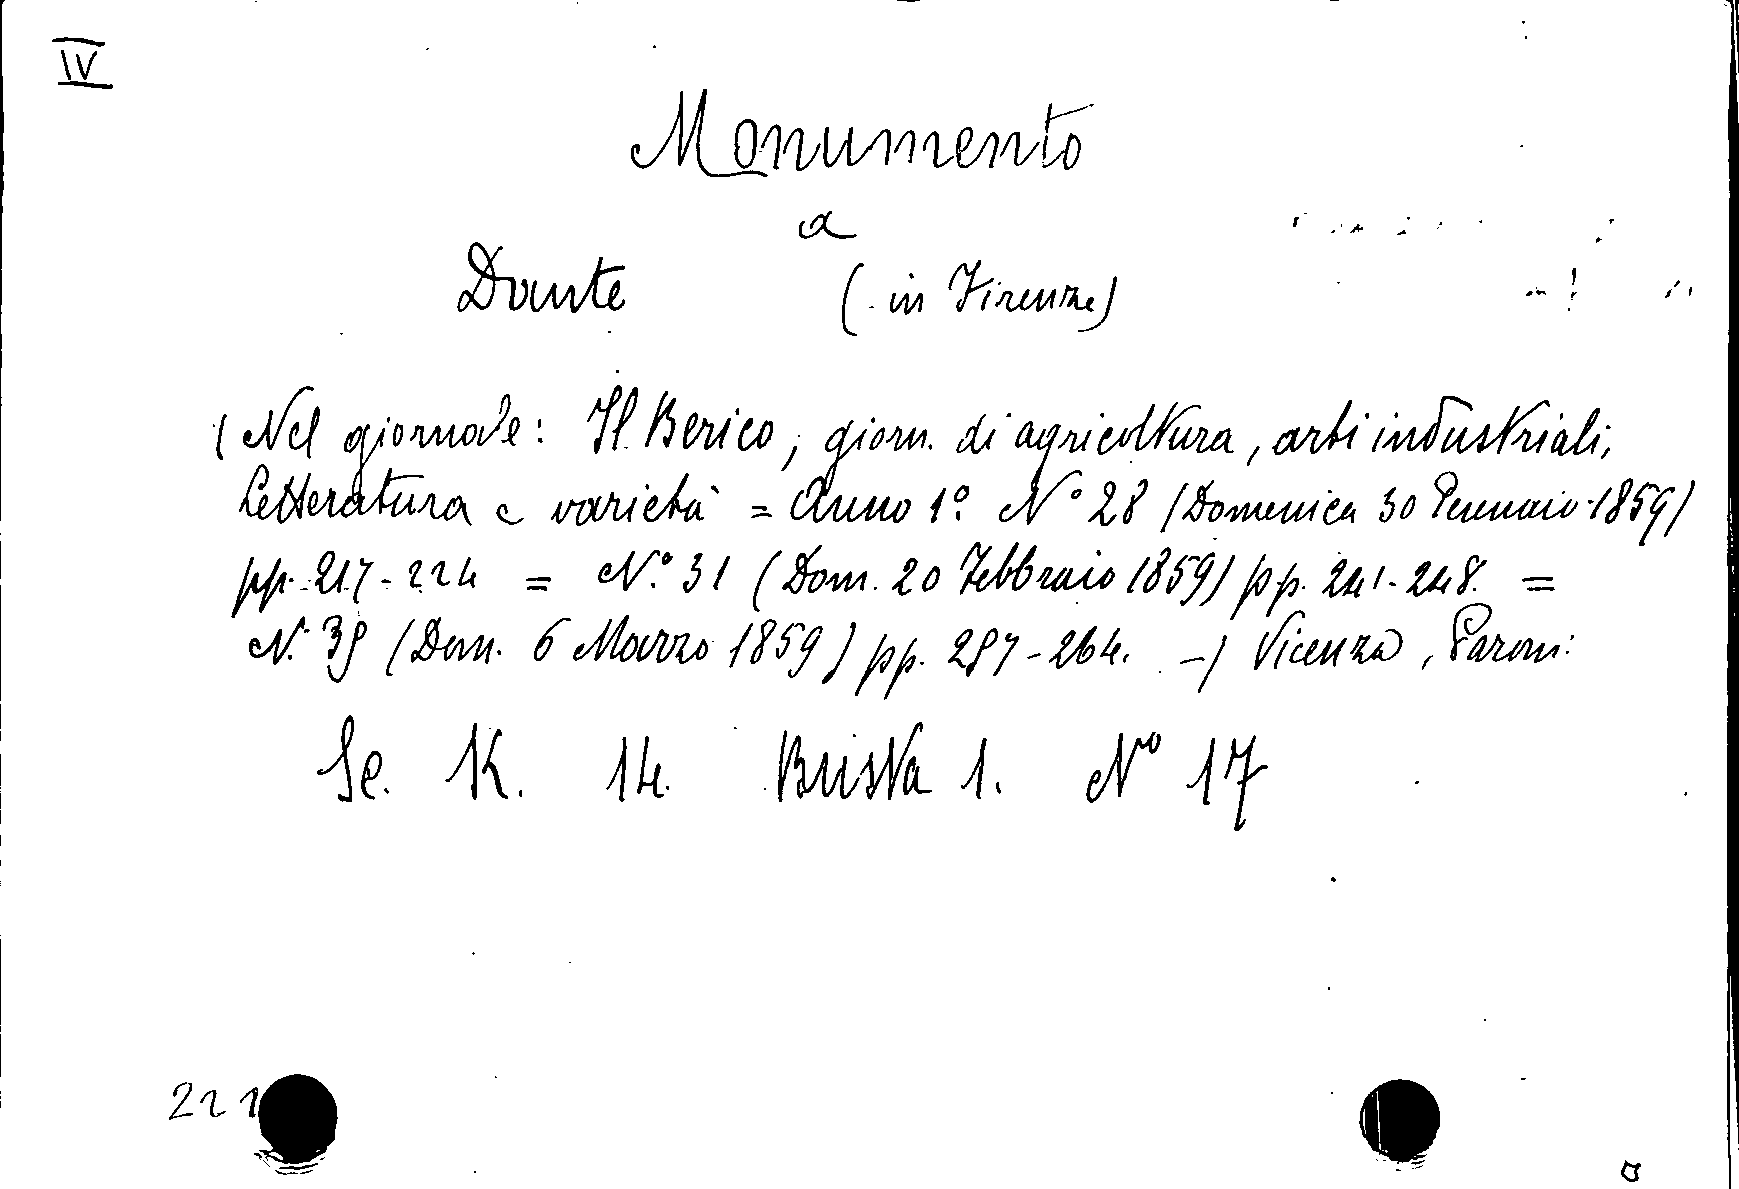 IV
Monumento
a
Dante (in Firenze)
(Nel giornale: Il Berico, giorn. di agricoltura, arti industriali,
Letteratura e varietà = Anno 1º. Nº 28 (Domenica 30 Gennaio 1859)
pp. 217-224 = N.º 31 (Dom. 20 Febbraio 1859) pp. 241-248. =
N. 33 (Dom. 6 Marzo 1859) pp. 257-264. -) Vicenza, Paroni
Sc. K. 14. Busta 1. Nº 17
221